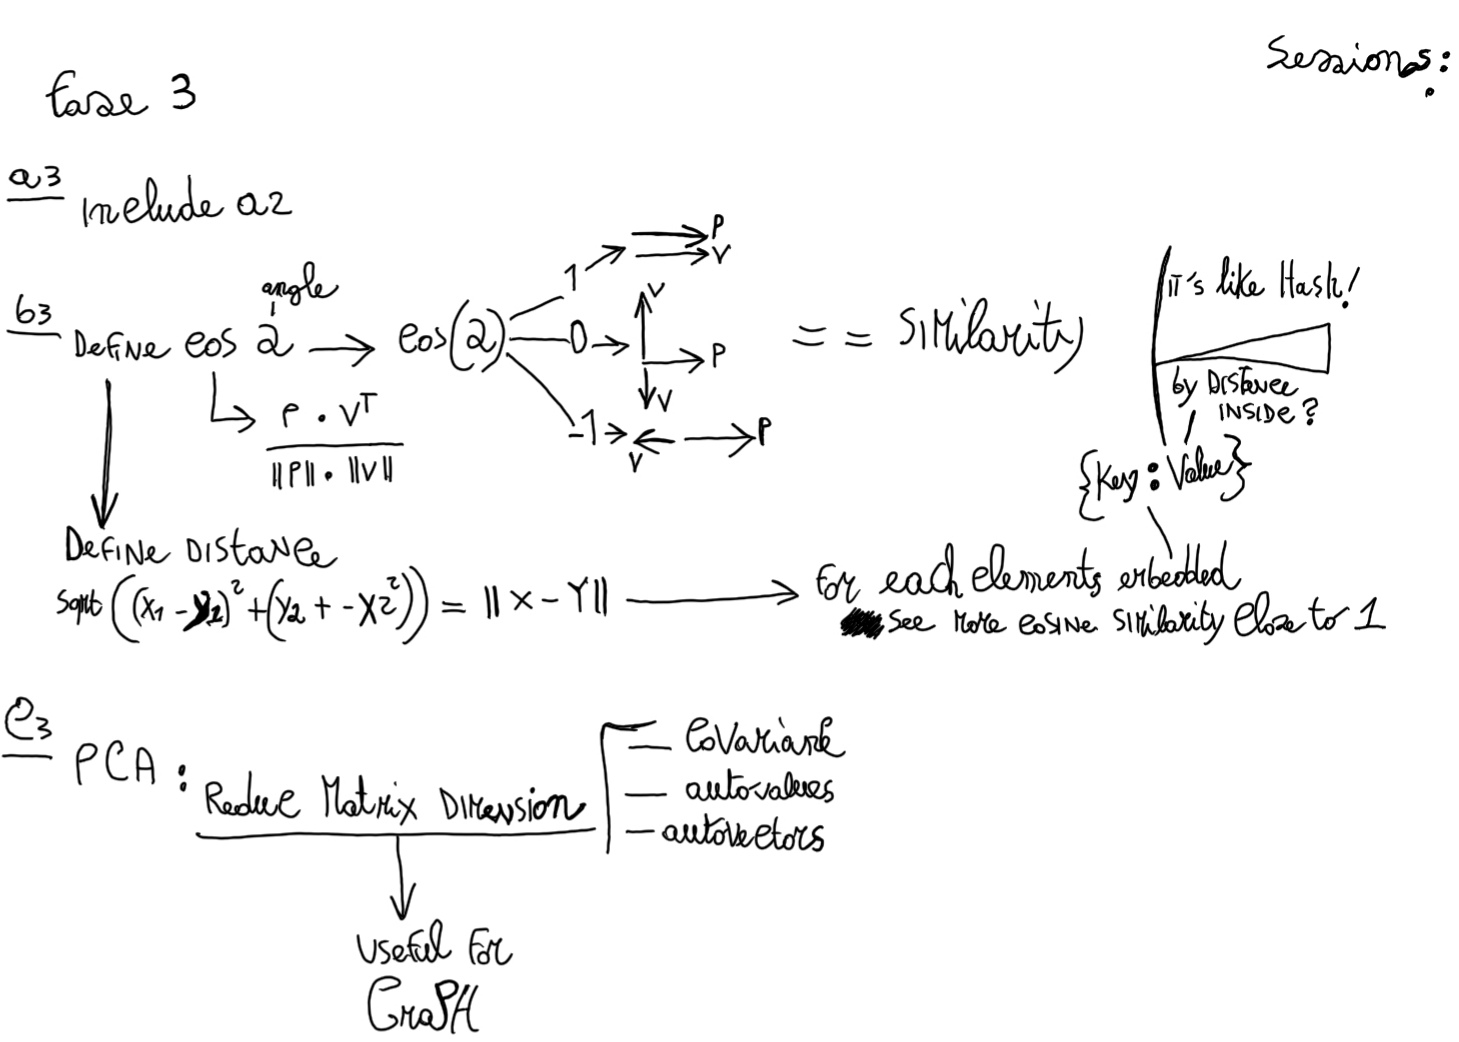 Sessions:
fase 3
a3
Include a2
angle
b3
Define cos 2 → cos(2)
1 → P
V
0 → V
P
V
-1 → V P
== Similarity
It's like Hash!
by Distance
inside?
{Key : Value}
P . Vᵀ
||P|| . ||V||
Define Distance
sqrt((x1 - y1)² + (y2 + -x2²)) = ||x - Y|| → for each elements embedded
see more cosine similarity close to 1
C3
PCA : Reduce Matrix Dimension
— Covariance
— autovalues
— autovectors
useful for
GraPH